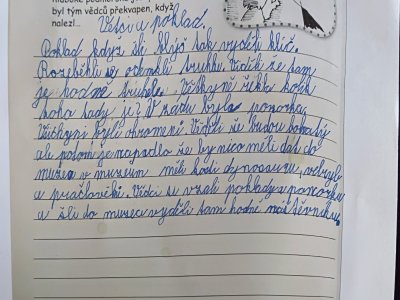 byl tým vědců překvapen, když
nalezl...
Vědci a poklad.
Poklad když šli blýž tak vyděli klíč.
Rozeběhli se otemkli truhlu. Viděli že tam
je hodně šuběla. Všichyně řekla kolik
toho tady je? V zádu byla ponorka.
Všichyni byli ohromeni. Viděli že budou bohatý
ale potom je napadlo že by něco měli dát do
muzea v muzeum měli kosti dynosaurů, velryb
a pračlověka. Vědci si vzali poklady a ponorku
a šli do muzea vyděli tam hodně náštěvníku.